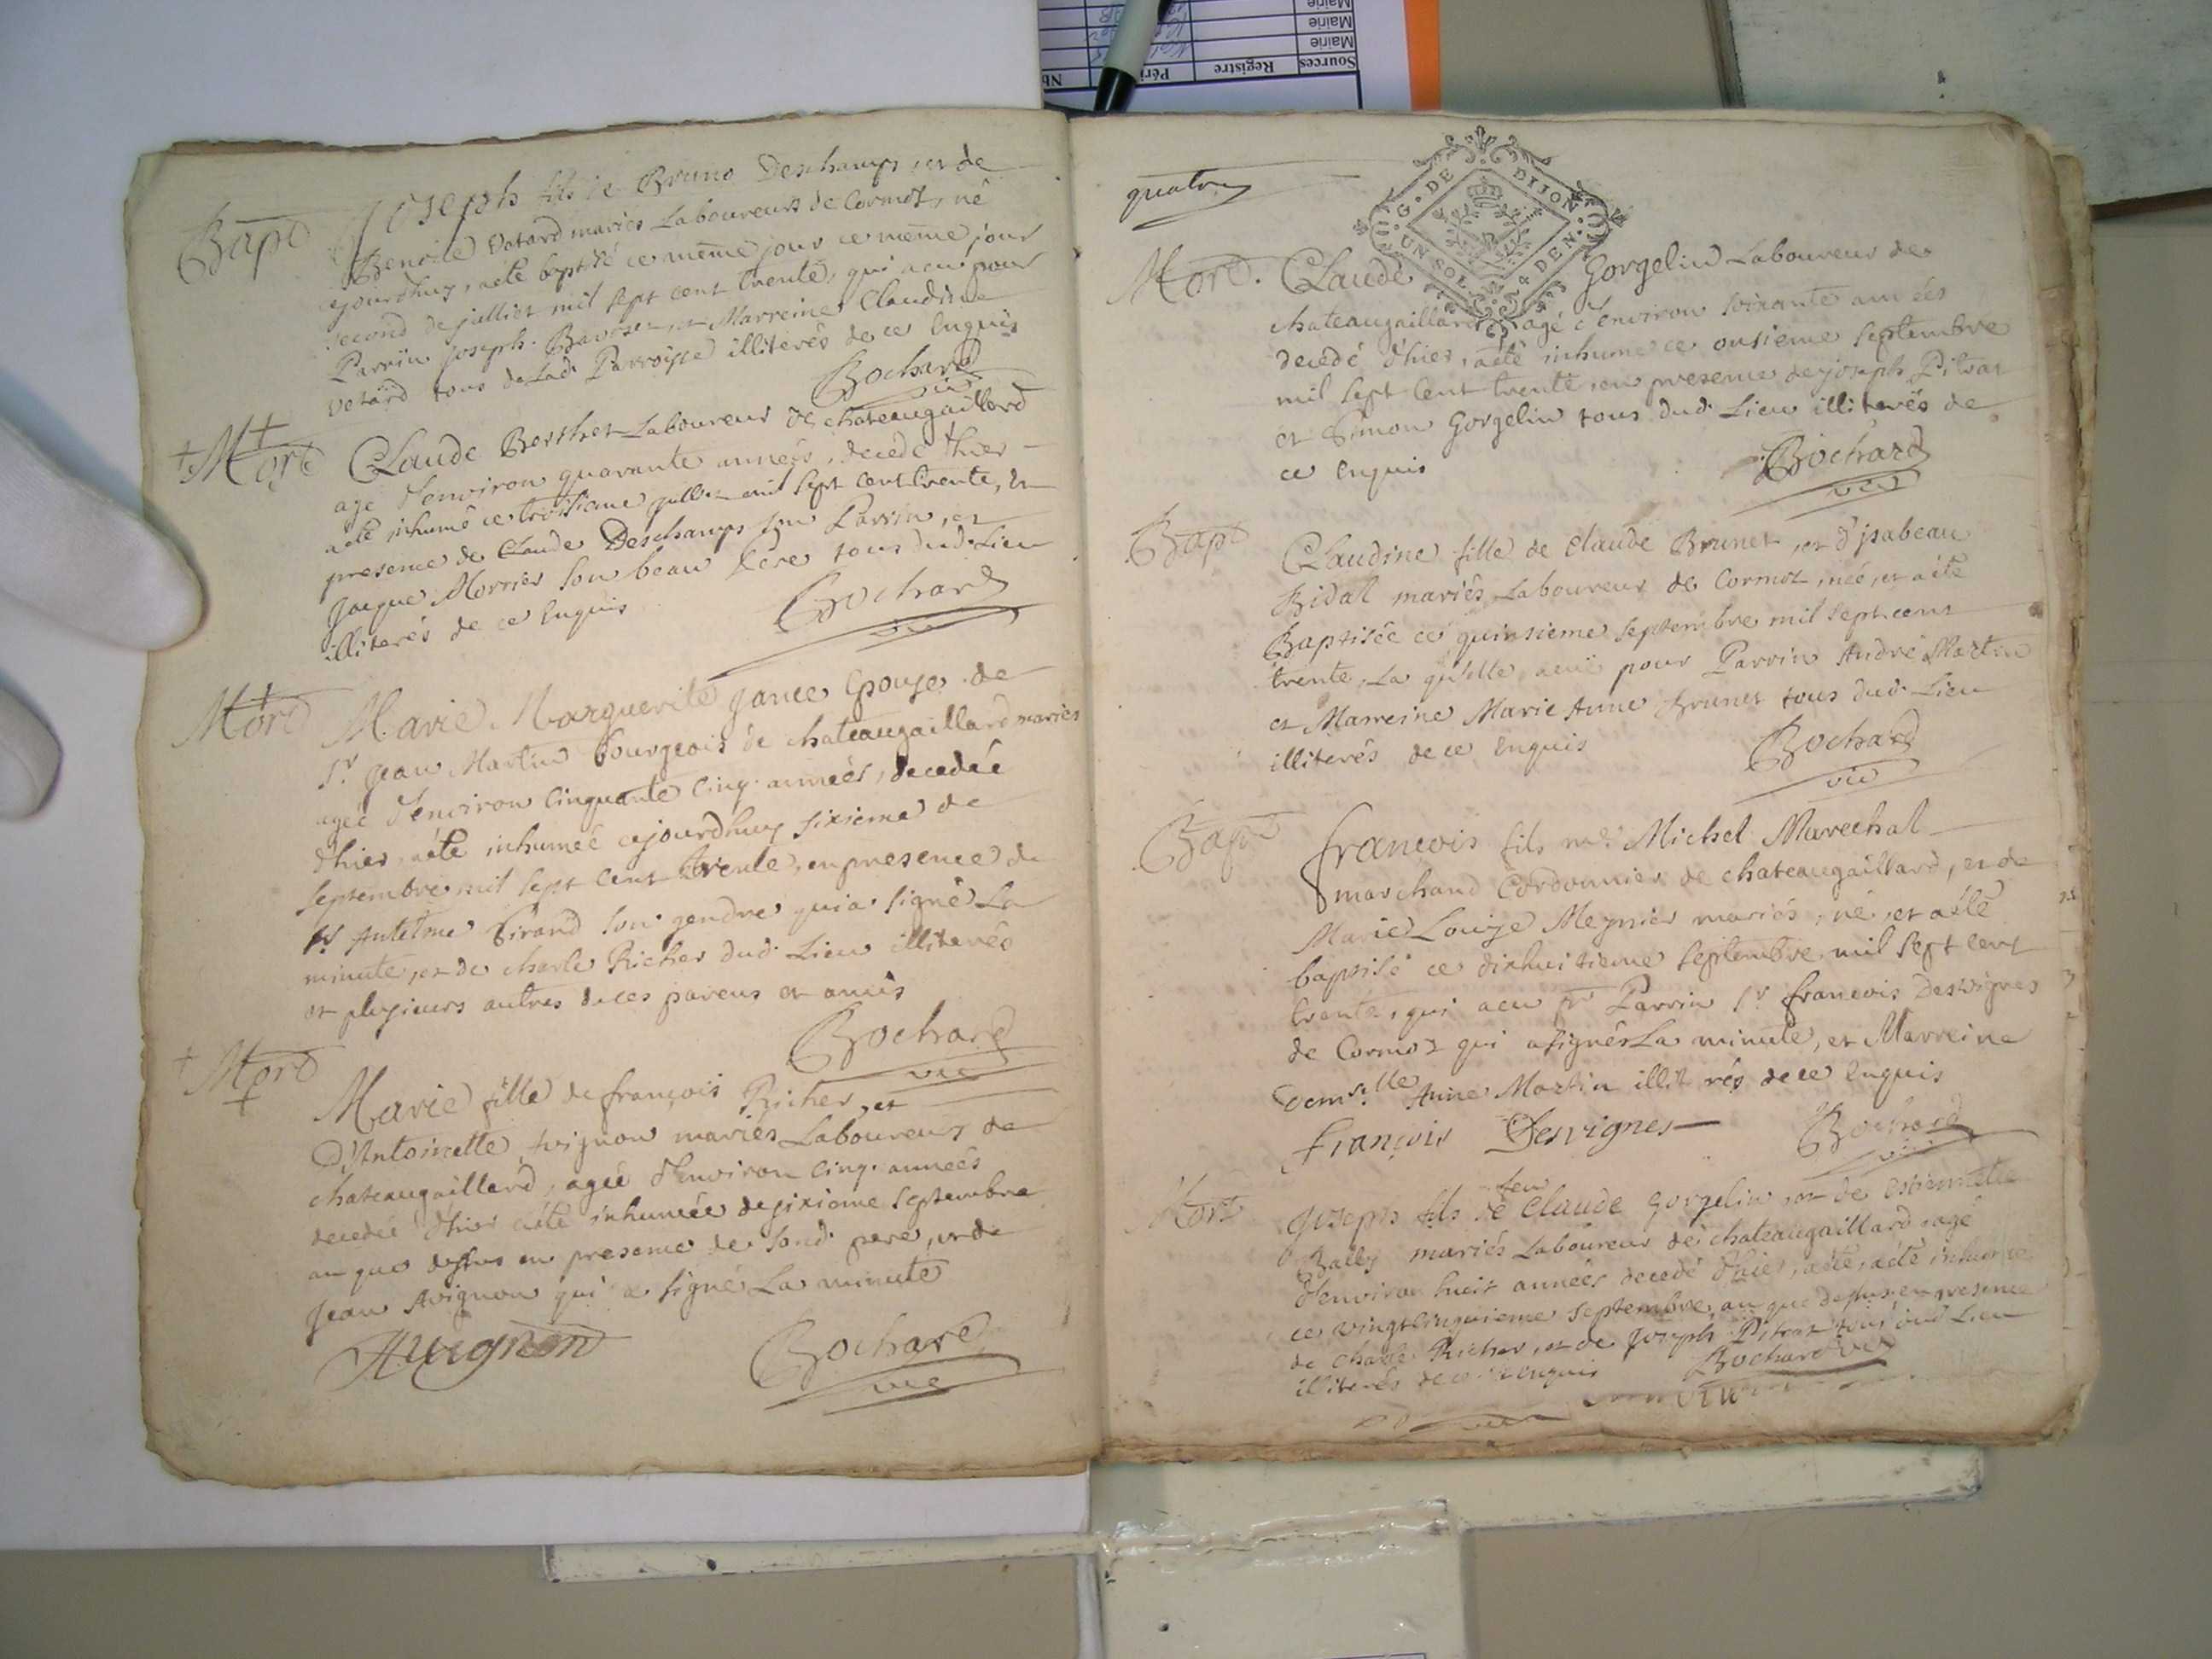 Bapt Joseph fils de Bruno Deschamps, et de
Benoite Votard mariés Laboureurs de Cormoz, né
cejourdhuy, a eté baptisé ce même jour ce même jour
second de julliet mil sept cent trente, qui a eu pour
Parrin Joseph et Marreine Claudine
Votard tous de Lad. Parroisse illiterés de ce Enquis
Bochard
vic
Mort Claude Berthet Laboureur de chateaugaillard
agé d'environ quarante années, decedé d'hier
a eté inhumé ce troisieme julliet mil sept cent trente, En
presence de Claude Deschamps son Parrin, et
Jacque Morrier son beau frere tous dud. Lieu
illiterés de ce Enquis
Bochard
vic
Mort Marie Marguerite Janee Epouse de
Sr. Jean Martin bourgeois de chateaugaillard mariés
agée d'environ Cinquante Cinq années, decedée
d'hier, a eté inhumée cejourdhuy sixieme de
Septembre mil sept Cent trente, en presence de
Sr Antelme Sirand son gendre qui a signé La
minute, et de charle Richer dud. Lieu illiterés
et plusieurs autres de ces parens et amis
Bochard
vic
Mort Marie fille de françois Richer, et
D'Antoinette Avignon mariés Laboureurs de
chateaugaillard, agée d'environ Cinq. années
decedée d'hier a eté inhumée Septembre
an que dessus en presence de Sond. pere, et de
Jean Avignon qui a signé La minute
Avignon
Bochard
vic
quatre
G. DE DIJON
UN SOL 4 DEN.
Mort. Claude Gorgelin Laboureur de
chateaugaillard agé d'environ soixante années
decedé d'hier, a eté inhumé ce onsieme septembre
mil sept Cent trente, en presence de joseph Pitrat
et Simon Gorgelin tous dud. Lieu illiterés de
ce Enquis
Bochard
vic
Bapt Claudine fille de Claude Brunet, et d'ysabeau
Bidal mariés Laboureurs de Cormoz, née, et a eté
Baptisée ce quinsieme septembre mil sept cent
trente, La quelle, a eu pour Parrin André Martin
et Marreine Marie Anne Brunet tous dud. Lieu
illiterés de ce Enquis
Bochard
vic
Bapt francois fils me Michel Marechal
marchand Cordonnier de chateaugaillard, et de
Marie Louise Meynier mariés, né, et a eté
baptisé ce dixhuitieme septembre, mil sept cent
trente, qui a eu pr Parrin Sr francois Desvignes
de Cormoz qui a signés La minute, et Marreine
Demselle Anne Martin illiterés de ce Enquis
François Desvignes
Bochard
vic
Mort Joseph fils de feu Claude Gorgelin, et de
Bailly mariés Laboureur de chateaugaillard, agé
d'environ huit années decedé d'hier, a eté, a eté inhumé
ce vingt Cinquieme septembre, an que dessus en presence
de charle Richer, et de Joseph Pitrat tous dud Lieu
illiterés de ce Enquis
Bochard vic
Sources Registre
Mairie
Mairie
Mairie